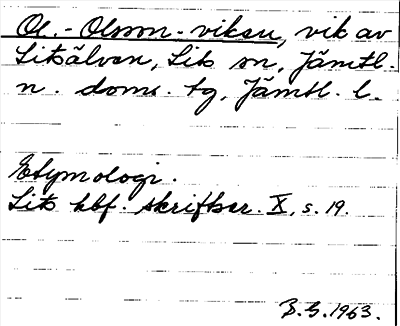 Ol.-Olsson-viken, vik av
Litsälven, Lits sn, Jämtl.
n. doms. tg, Jämtl. l.
Etymologi.
Lits hbf. skrifter. X, s. 19.
B.G. 1963.